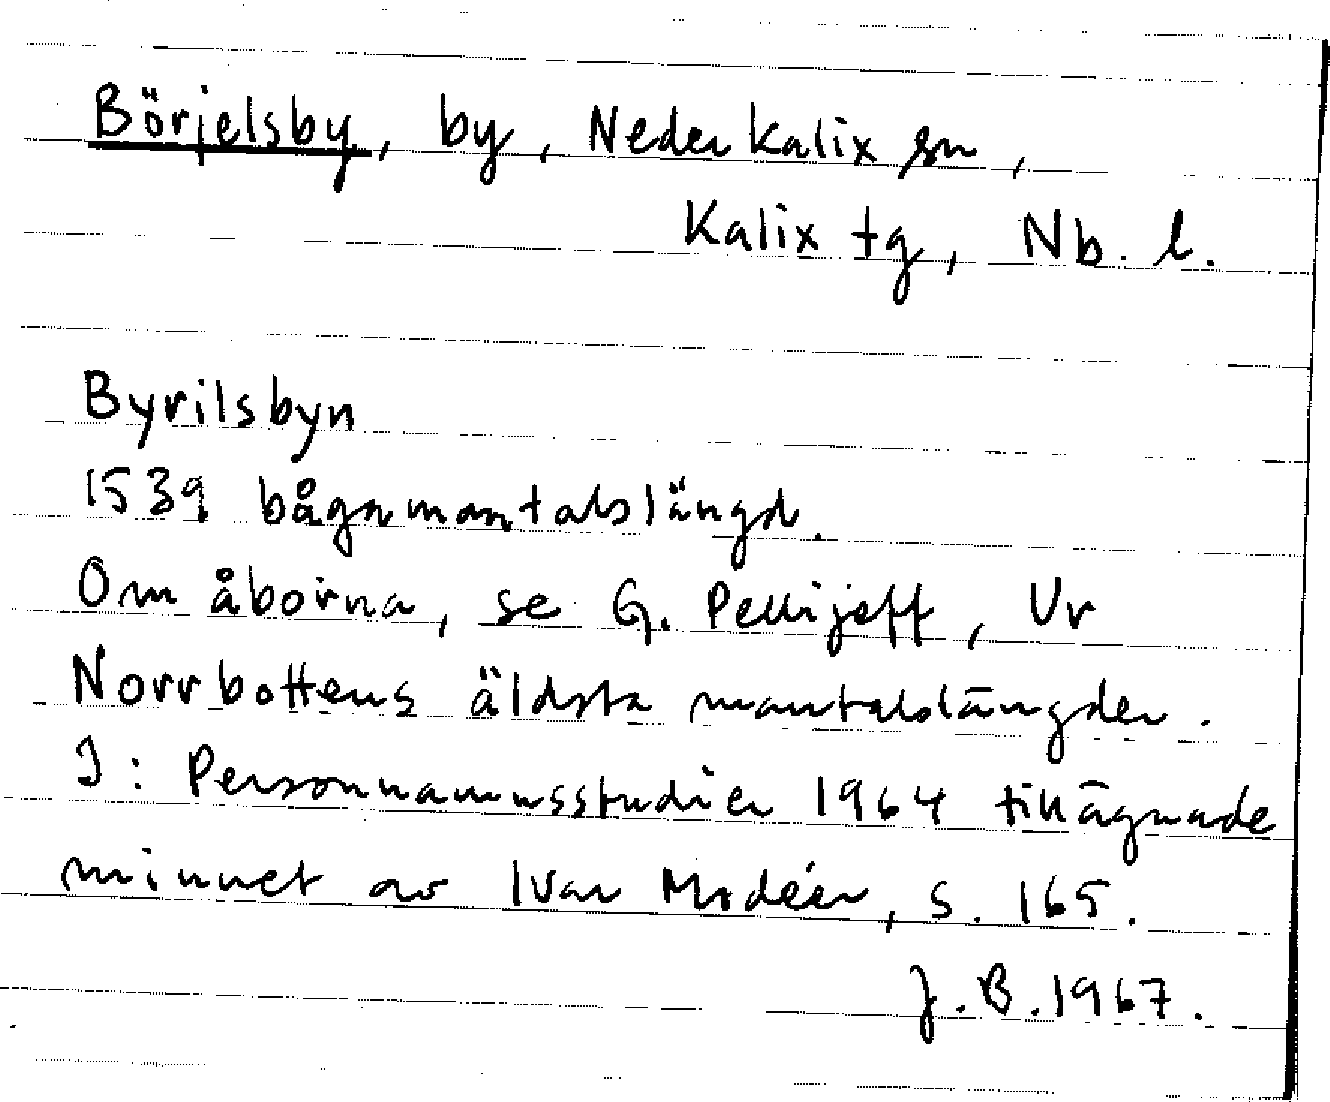 Börjelsby, by, Nederkalix sn,
Kalix tg, Nb. l.
Byrilsbyn
1539 bågamantalslängd.
Om åborna, se G. Pellijeff, Ur
Norrbottens äldsta mantalslängder.
I: Personnamnsstudier 1964 tillägnade
minnet av Ivar Modéer, s. 165.
J.B. 1967.